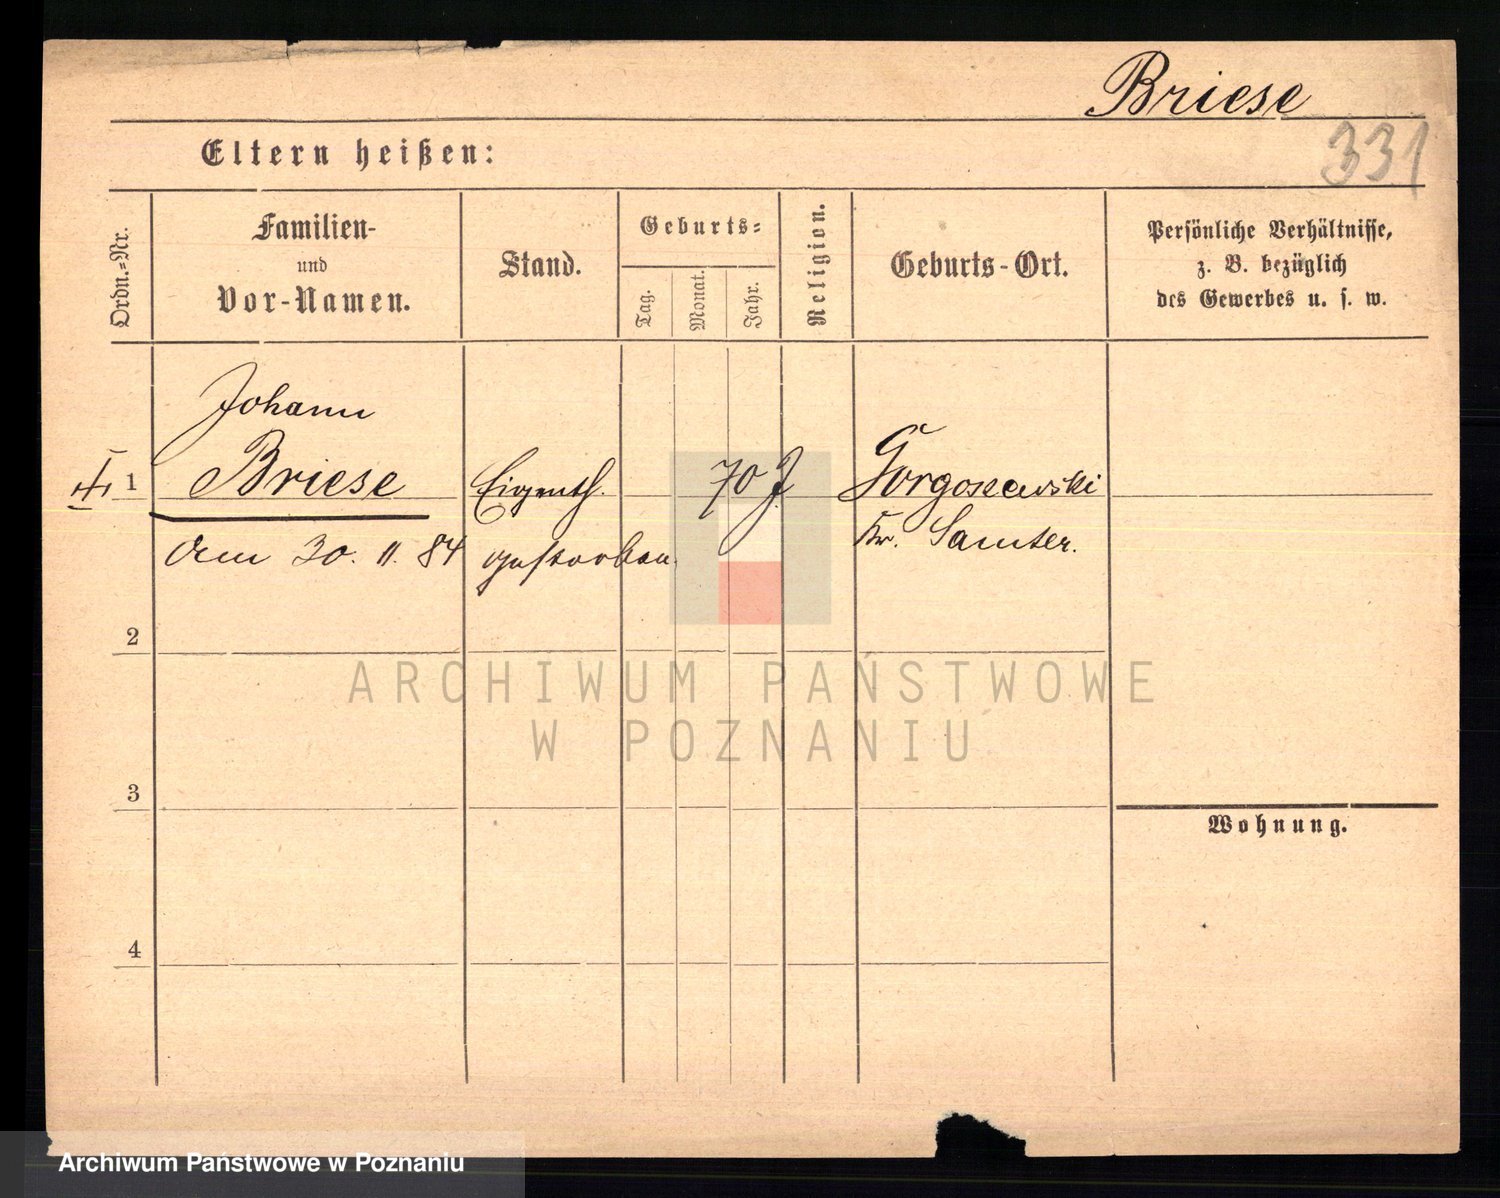 Briese
331
Eltern heißen:
Ordn.=Nr.
Familien-
und
Vor-Namen.
Stand.
Geburts=
Tag.
Monat.
Jahr.
Religion.
Geburts-Ort.
Persönliche Verhältnisse,
z. B. bezüglich
des Gewerbes u. s. w.
Johann
1 Briese Eigenth. 70 J. Gorgoszewski
Kr. Samter.
am 30. 11. 84 gestorben.
2
3
Wohnung.
4
ARCHIWUM PAŃSTWOWE
W POZNANIU
Archiwum Państwowe w Poznaniu